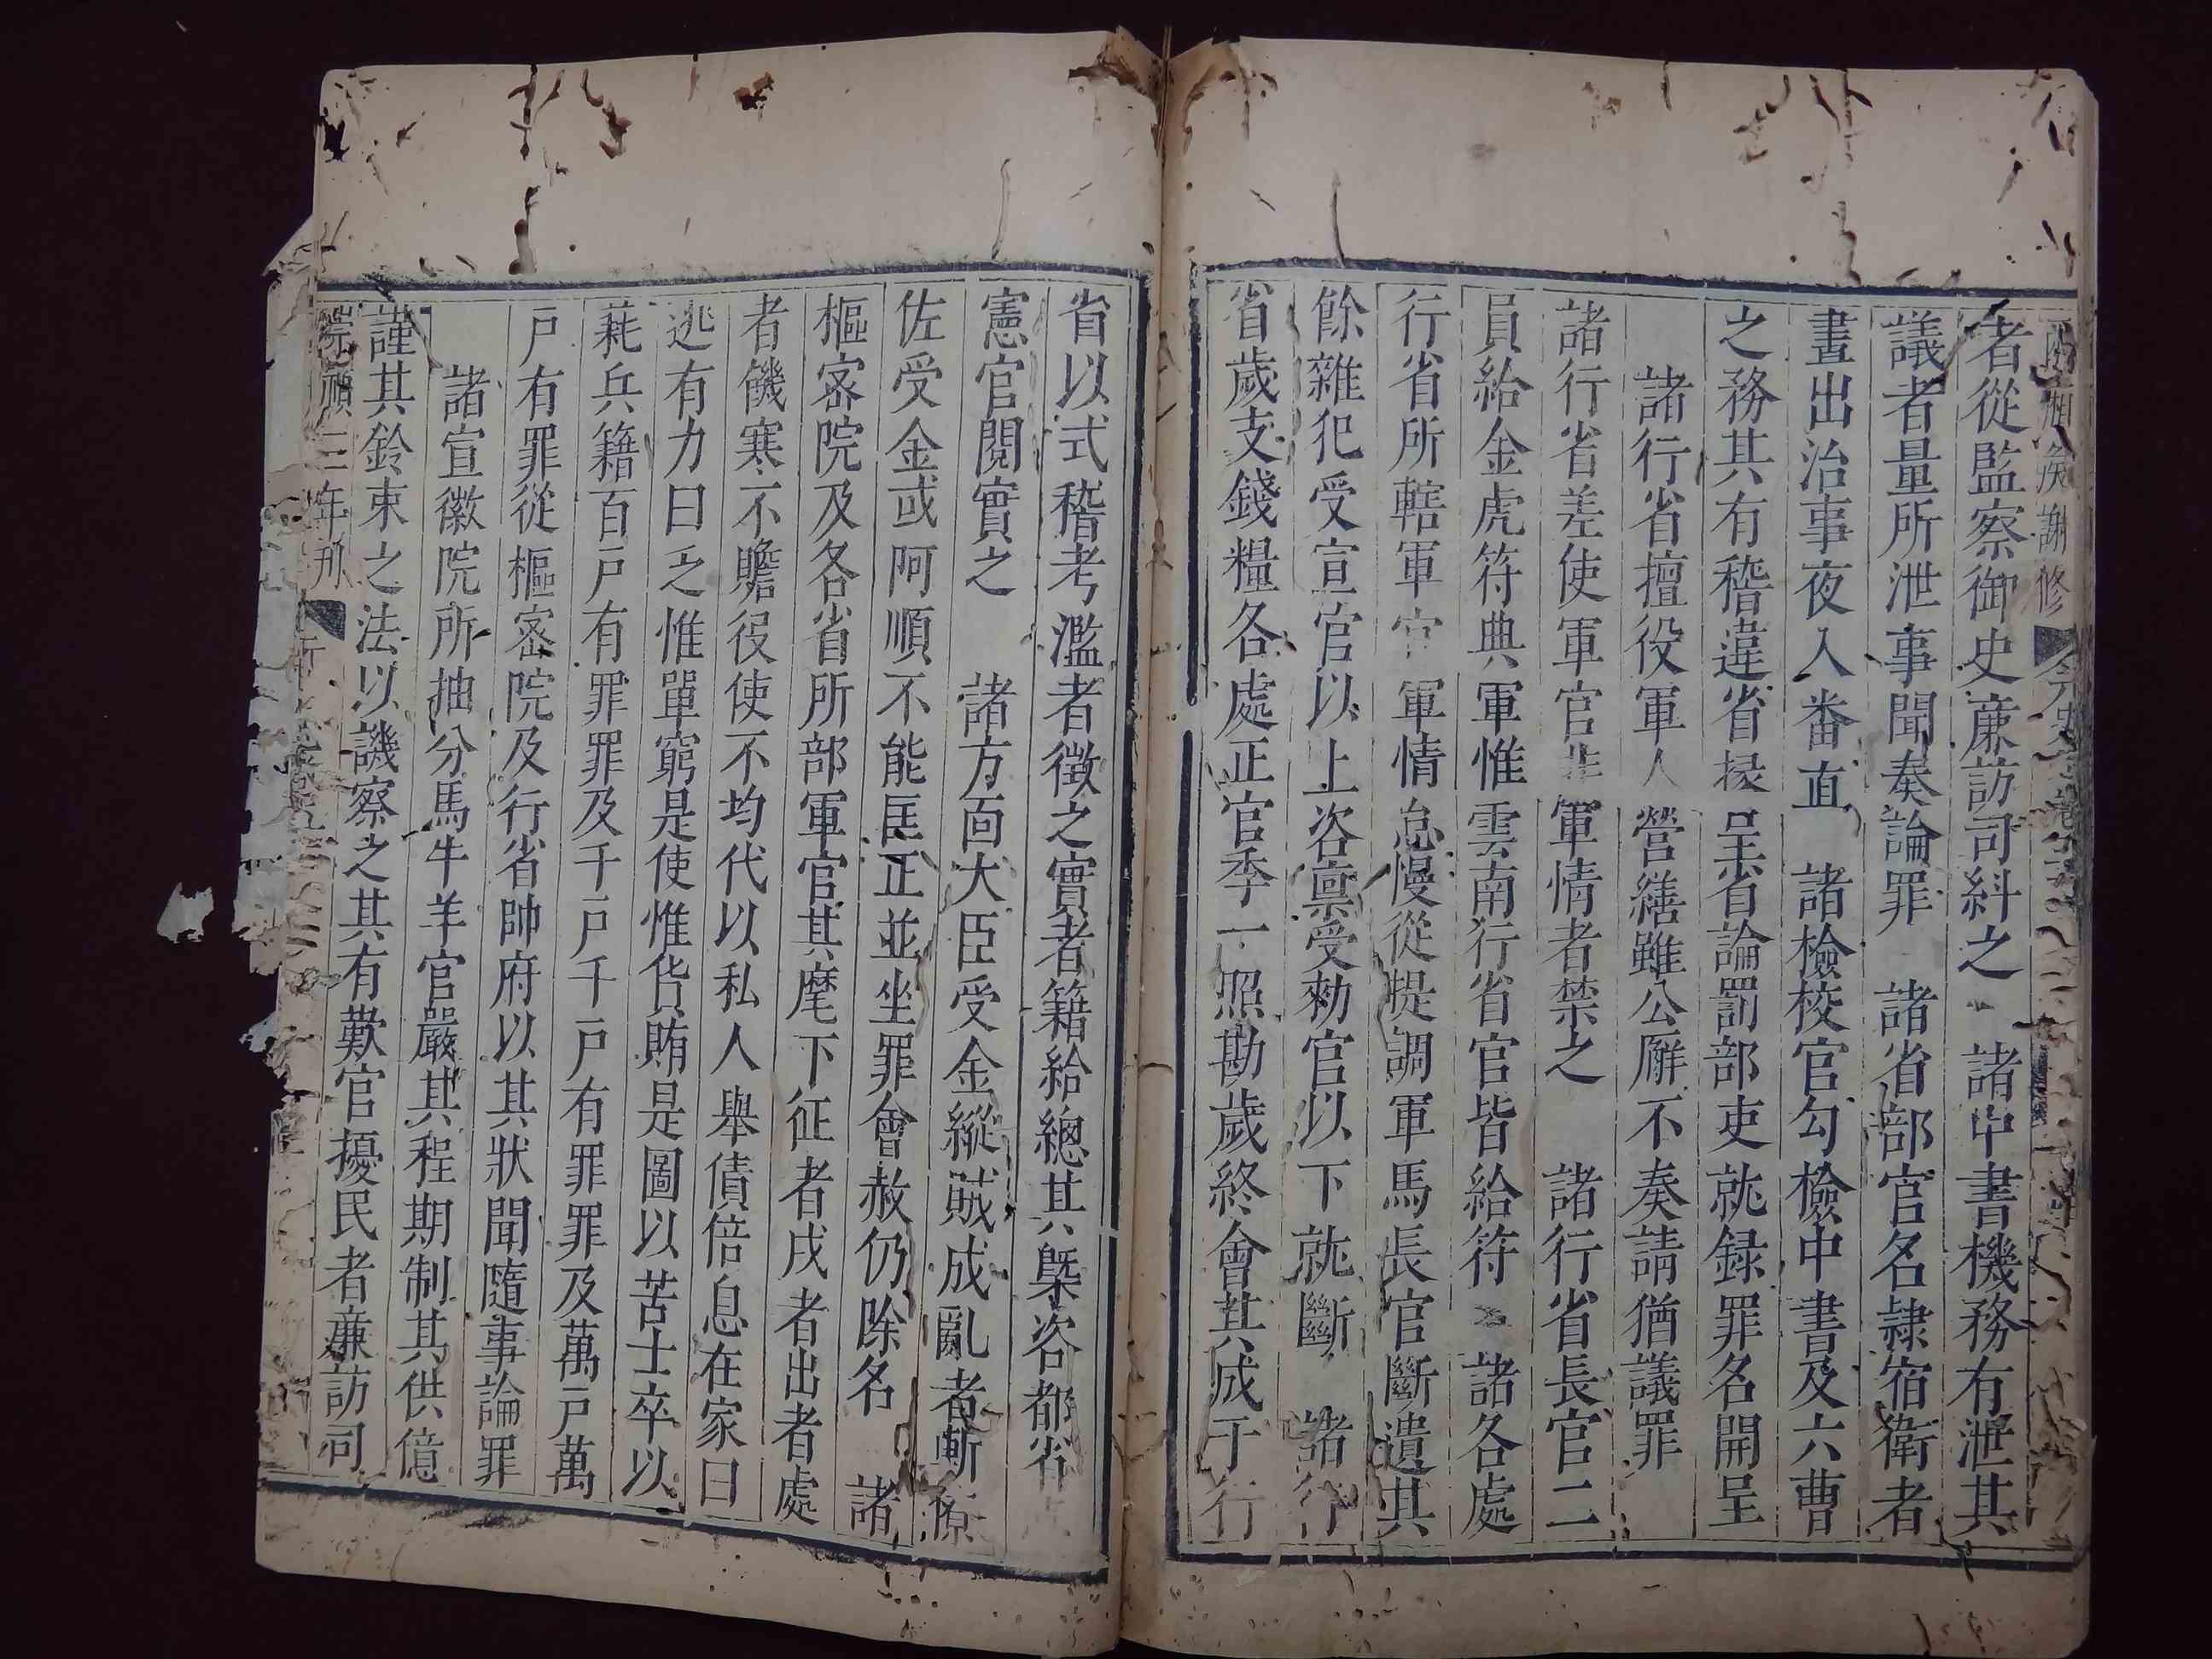 謝修
者從監察御史廉訪司糾之 諸中書機務有泄其
議者量所泄事聞奏論罪 諸省部官名隷宿衛者
晝出治事夜入番直 諸檢校官勾檢中書及六曹
之務其有稽違省掾呈省論罰部吏就録罪名開呈
諸行省擅役軍人營繕雖公廨不奏請猶議罪
諸行省差使軍官非軍情者禁之 諸行省長官二
員給金虎符典軍惟雲南行省官皆給符 諸各處
行省所轄軍官軍情怠慢從提調軍馬長官斷遣其
餘雜犯受宣官以上咨禀受勑官以下就斷 諸行
省歲支錢糧各處正官季一照勘歲終會其成于行
省以式稽考濫者徵之實者籍給總其槩咨都省
憲官閱實之 諸方面大臣受金縱賊成亂者斬僚
佐受金或阿順不能匡正並坐罪會赦仍除名 諸
樞密院及各省所部軍官其麾下征者戍者出者處
者饑寒不贍役使不均代以私人舉債倍息在家曰
逃有力曰乏惟單窮是使惟貨賄是圖以苦士卒以
耗兵籍百戸有罪罪及千戸千戸有罪罪及萬戸萬
戸有罪從樞密院及行省帥府以其狀聞隨事論罪
諸宣徽院所抽分馬牛羊官嚴其程期制其供億
謹其鈐束之法以譏察之其有歎官擾民者廉訪司
崇禎三年刊